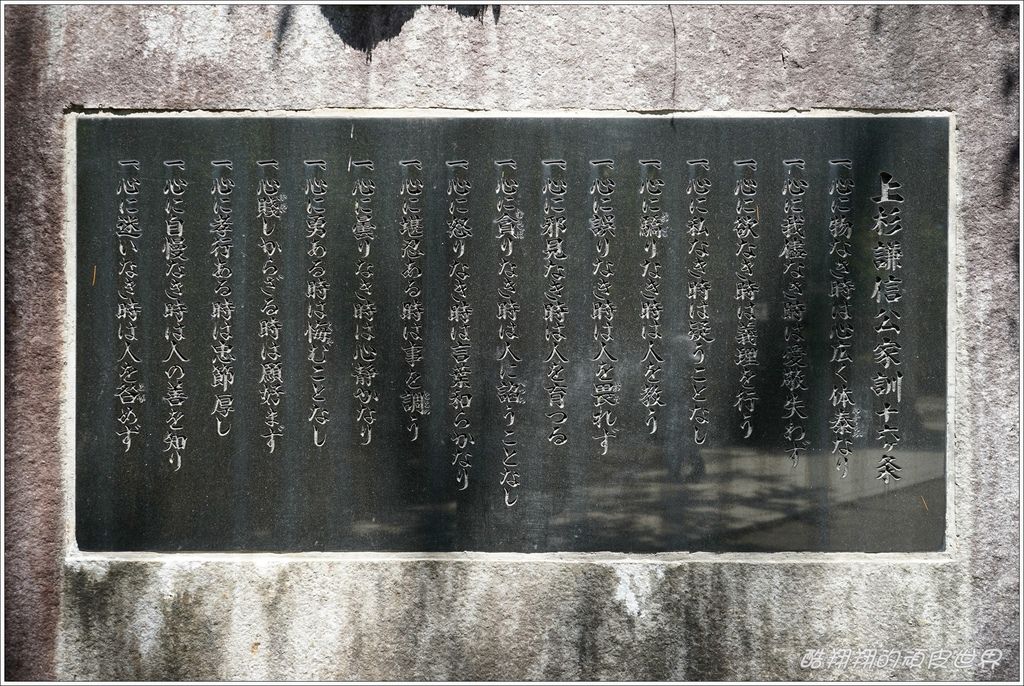 上杉謙信公家訓十六ケ条
一心に物なき時は心広く体泰なり
一心に我儘なき時は愛敬失わず
一心に欲なき時は義理を行う
一心に私なき時は疑うことなし
一心に驕りなき時は人を敬う
一心に誤りなき時は人を畏れず
一心に邪見なき時は人を育つる
一心に貪りなき時は人に諂うことなし
一心に怒りなき時は言葉和らかなり
一心に堪忍ある時は事を調う
一心に曇りなき時は心静かなり
一心に勇ある時は悔むことなし
一心賤しからざる時は願好まず
一心に孝行ある時は忠節厚し
一心に自慢なき時は人の善を知り
一心に迷いなき時は人を咎めず
酷翔翔的頑皮世界